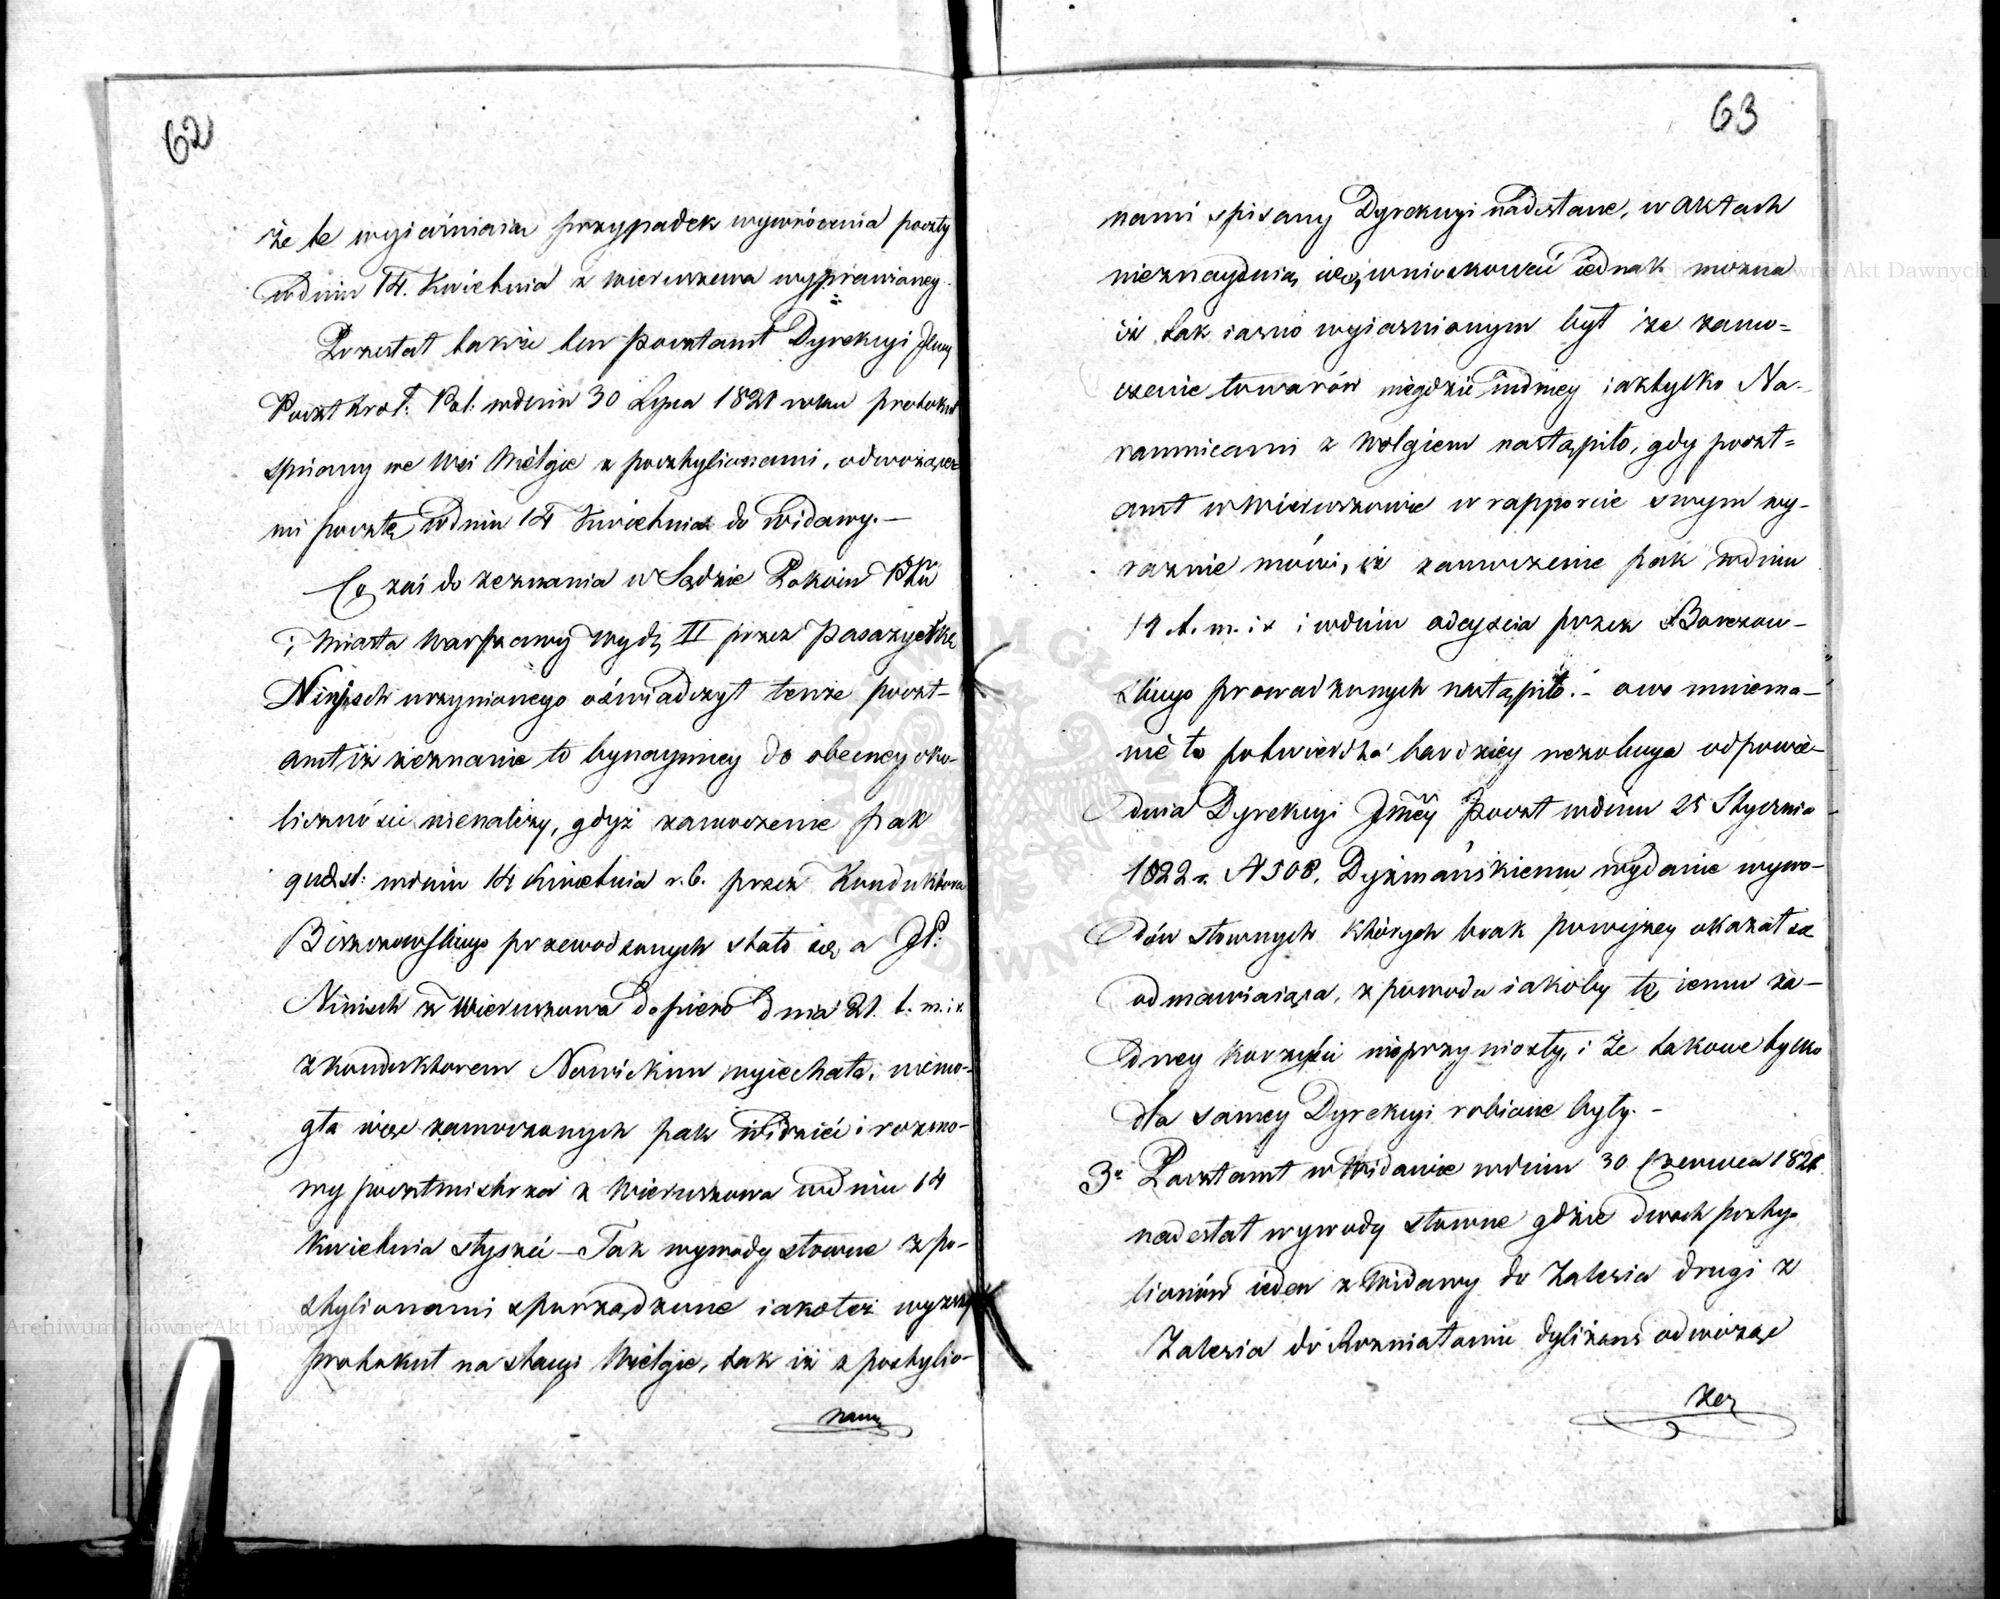 62
że te wyiaśniaia przypadek wywrócenia poczty
wdniu 14. Kwietnia z Wieruszowa wyprawioney.
Przesłał także ten pocztamt Dyrekcyi Jlney
Poczt Król: Pol: wdniu 30 Lipca 1821 roku protokuł
spisany we Wsi Mełgie z pocztylionami, odwożące-
mi pocztę wdniu 14 Kwietnia do Widawy. —
Co zaś do zeznania w Sądzie Pokoiu Pttu
i Miasta Warszawy Wydz. II przez Pasażyerkę
Ninisch uczynionego oświadczył tenże poczt-
amt iż zeznanie to bynaymniey do obecney oko-
liczności nienależy, gdyż zamoczenie pak
quest: wdniu 14 Kwietnia r. b. przez Konduktora
przewodzonych stało się, a JP:
Ninisch z Wieruszowa dopiero dnia 21. t. m. i r.
z konduktorem Nowickim wyiechała, niemo-
gła więc zamoczonych pak widzieć i rozmo-
wy pocztmistrza z Wieruszowa wdniu 14
Kwietnia słyszeć — Tak wywody słowne z po-
sztylionami sporządzone iakoteż wyższy
protokuł na stacyi Mełgie, tak iż z posztylio-
nami
63
nami spisany Dyrekcyi nadesłane, w Aktach
nieznaydują się, wnioskować iednak można
iż tak iasno wyiaśnionym był że zamo-
czenie towarów niegdzie indziey iak tylko Na-
ramnicami z Wołgiem nastąpiło, gdy poczt-
amt w Wieruszowie w rapporcie swym wy-
raznie mówi, iż zamoczenie pak wdniu
14 t. m. i r. i wdniu odeyścia przez Borczow-
skiego prowadzonych nastąpiło. — owo mniema-
nie to potwierdza bardziey rezolucya odpowie-
dnia Dyrekcyi Jlney Poczt wdniu 25 Stycznia
1822 r. N 508. Dyzmańskiemu wydanie wywo-
dów słownych których brak powyżey okazał się
odmawiaiąca, z powodu iakoby te iemu ża-
dney korzyści nieprzyniosły, i że takowe tylko
dla samey Dyrekcyi robione były. —
3e Pocztamt w Widawie wdniu 30 Czerwca 1821
nadesłał wywody słowne gdzie dwoch poszty-
lionów ieden z Widawy do Zalesia drugi z
Zalesia do Rozniatowic dyliżans odwożąc
zez